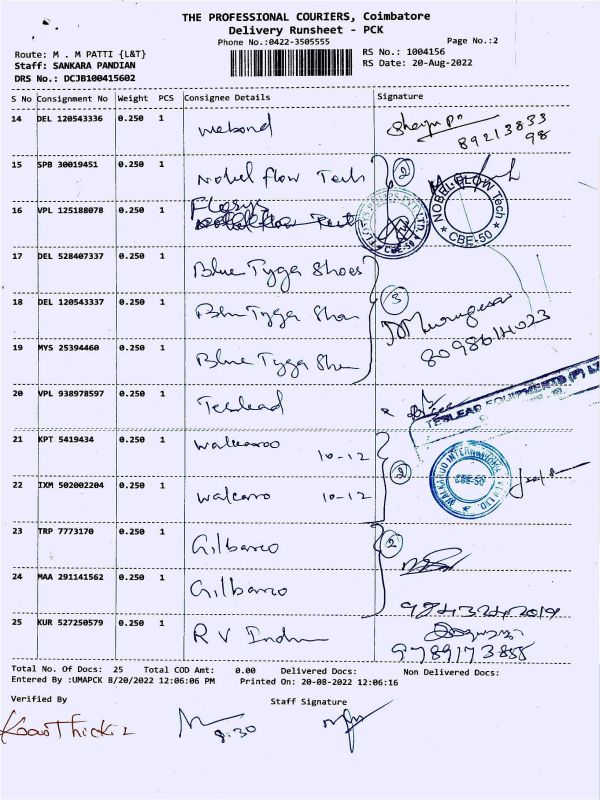 THE PROFESSIONAL COURIERS, Coimbatore
Delivery Runsheet - PCK
Phone No.:0422-3505555
Page No.:2
Route: M . M PATTI {L&T}
RS No.: 1004156
Staff: SANKARA PANDIAN
RS Date: 20-Aug-2022
DRS No.: DCJB100415602
S No Consignment No Weight PCS Consignee Details Signature
14 DEL 120543336 0.250 1 webond
89213833
98
15 SPB 30019451 0.250 1 Nobel flow Tech 2
NOBEL FLOW Tech
CBE-50
16 VPL 125188078 0.250 1
CBE-50
17 DEL 528407337 0.250 1 Blue Tyga Shoes
18 DEL 120543337 0.250 1 Blue Tyga 3
8098614023
19 MYS 25394460 0.250 1 Blue Tyga
20 VPL 938978597 0.250 1 Teslead
TESLEAD EQUIPMENTS (P) LT
21 KPT 5419434 0.250 1 walkaroo
10-12 2
WALKAROO INTERNATIONAL PVT LTD.
CBE-50
22 IXM 502002204 0.250 1 walcarro 10-12
23 TRP 7773170 0.250 1 Gilbarco 2
24 MAA 291141562 0.250 1 Gilbarco
9843242019
25 KUR 527250579 0.250 1 R V
9789173858
Total No. Of Docs: 25 Total COD Amt: 0.00 Delivered Docs: Non Delivered Docs:
Entered By :UMAPCK 8/20/2022 12:06:06 PM Printed On: 20-08-2022 12:06:16
Verified By Staff Signature
8.30